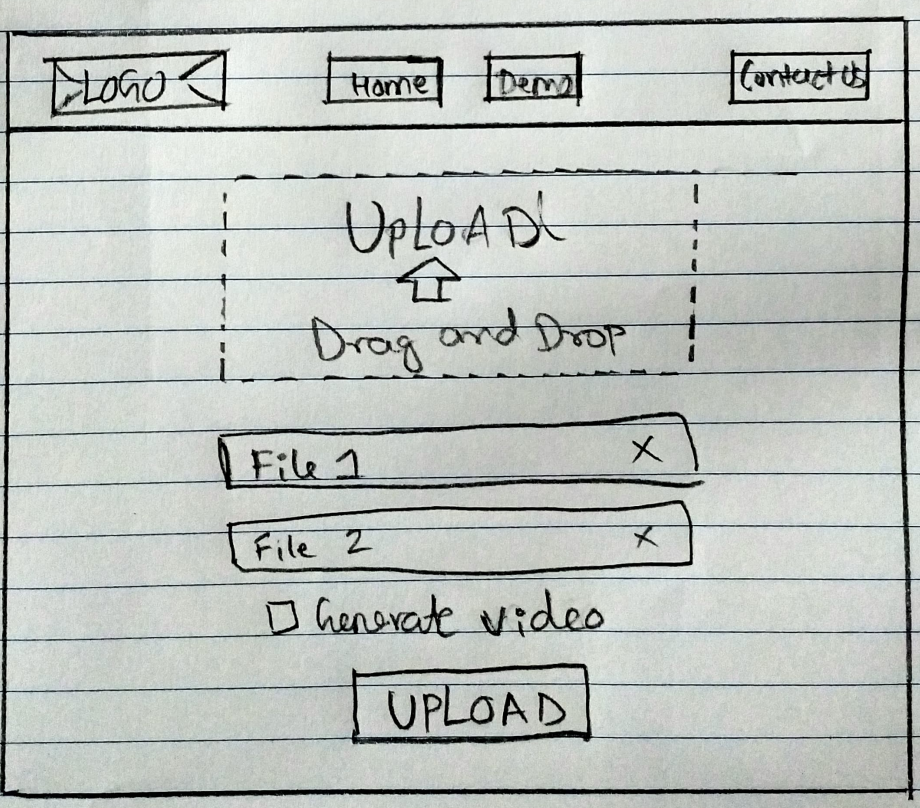 LOGO Home Demo Contact Us
UPLOAD
Drag and Drop
File 1 X
File 2 X
Generate video
UPLOAD